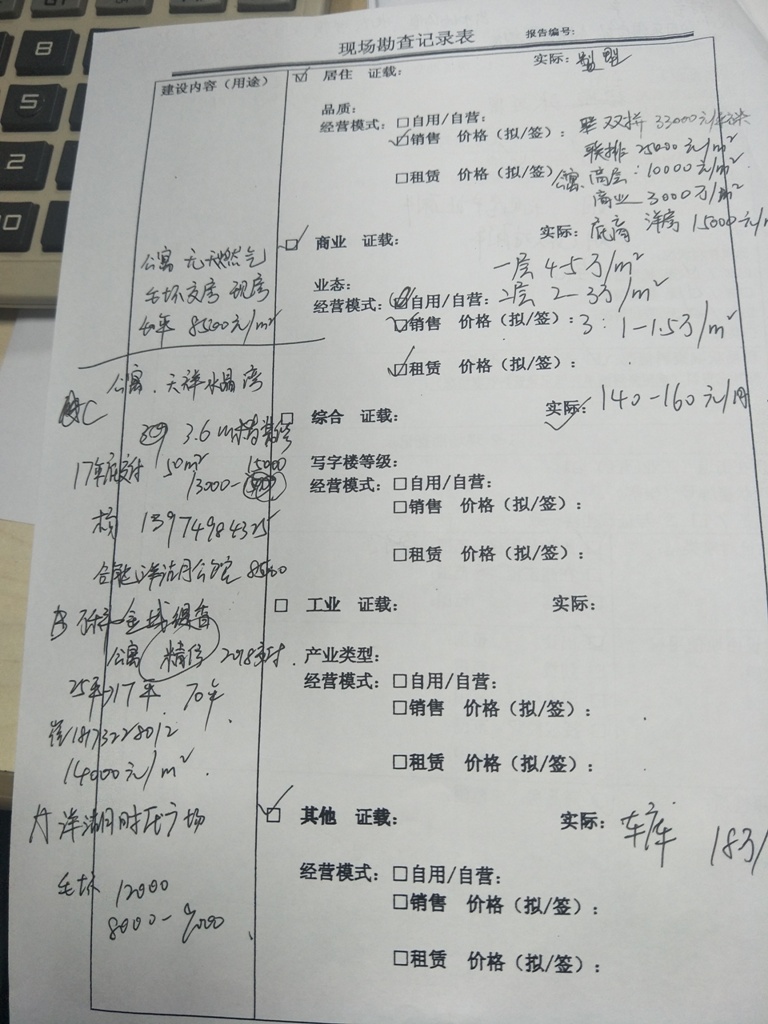 8
5
2
现场勘查记录表 报告编号:
建设内容（用途）
居住 证载: 实际: 别墅
品质:
经营模式: 自用/自营:
销售 价格（拟/签）: 双拼 33000元/平米
联排 25000元/m²
租赁 价格（拟/签） 公寓 高层: 10000元/m²
商业 3000万/m²
商业 证载: 实际: 底商 洋房 15000元/
一层 4-5万/m²
业态:
经营模式: 自用/自营: 2层 2-3万/m²
销售 价格（拟/签）: 3: 1-1.5万/m²
租赁 价格（拟/签）:
综合 证载: 实际: 140-160元/月
写字楼等级:
经营模式: 自用/自营:
销售 价格（拟/签）:
租赁 价格（拟/签）:
工业 证载: 实际:
产业类型:
经营模式: 自用/自营:
销售 价格（拟/签）:
租赁 价格（拟/签）:
其他 证载: 实际: 车库 18万/
经营模式: 自用/自营:
销售 价格（拟/签）:
租赁 价格（拟/签）:
公寓 无天燃气
毛坯交房 现房
8500元/m²
公寓 天祥水晶湾
C
3.6m
17年底交付 50m² 15000
13000-
13974984325
8500
B
公寓 精修
25年 17年 70年
18173228012
14000元/m²
A 洋湖时代广场
毛坯 12000
8000-9000